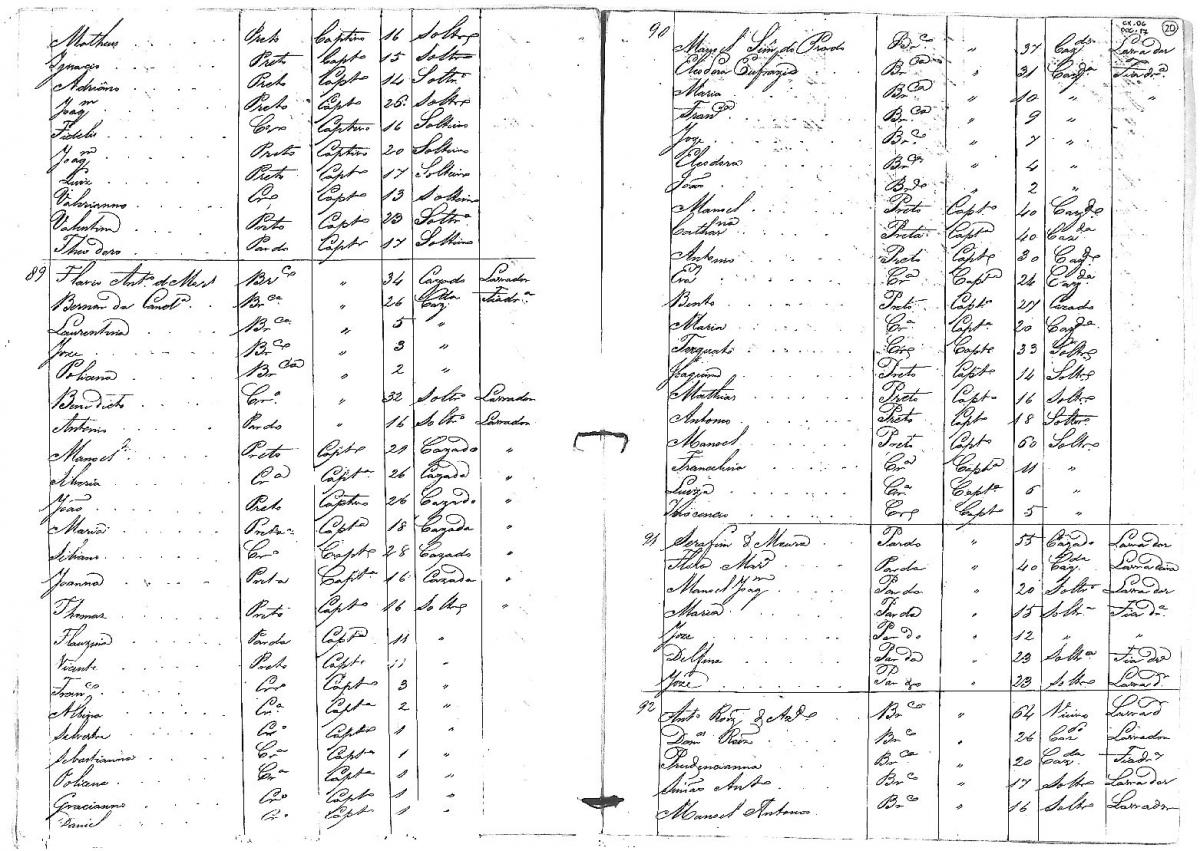 Matheus Preto Captivo 16 Soltro
Ignacio Preto Capto 15 Soltro
Adriano Preto Capto 14 Soltro
Joaqm Preto Capto 26 Soltro
Fidelis Cro Captivo 16 Solteiro
Joaqm Preto Captivo 20 Solteiro
Luiz Preto Capto 17 Solteiro
Valerianno Cro Capto 13 Solteiro
Valentim Preto Capto 23 Soltro
Theodoro Pardo Capto 17 Solteiro
89 Flavio Anto de Brco " 34 Cazado Lavrador
Bernarda Candа Brca " 26 Cazda Fiadra
Laurentina Brca " 5 "
Joze Brco " 3 "
Policena Brca " 2 "
Benedicto Cro " 32 Soltro Lavrador
Antonio Pardo " 16 Soltro Lavrador
Manoel Preto Capto 29 Cazado "
Cra Capta 26 Cazada "
João Preto Captivo 26 Cazado "
Maria Preta Capta 18 Cazada "
Silvano Cro Capto 28 Cazado "
Joanna Preta Capta 16 Cazada "
Thomas Preto Capto 16 Soltro "
Flauzina Parda Capta 11 "
Vicente Preto Capto 11 "
Franco Cro Capto 3 "
Albina Cra Capta 2 "
Silvestre Cro Capto 1 "
Sebastianna Cra Capta 1 "
Policena Cra Capta 1 "
Gracianno Cro Capto 1 "
Daniel Cro Capto 1 "
CX.06
DOC.17
20
90 Manoel Simão do Prado Brco " 37 Cazdo Lavrador
Eleodora Eufrazia Brca " 31 Cazda Fiadra
Maria Brca " 10 " "
Franca Brca " 9 "
Joze Brco " 7 "
Eleodora Brca " 4 "
João Brco " 2 "
Manoel Preto Capto 40 Cazdo
Catharna Preta Capta 40 Cazda
Antonio Preto Capto 30 Cazdo
Eva Cra Capta 26 Cazda
Bento Preto Capto 27 Cazado
Maria Cra Capta 20 Cazda
Torquato Cro Capto 33 Soltro
Joaquim Preto Capto 14 Soltro
Mathias Preto Capto 16 Soltro
Antonio Preto Capto 18 Soltro
Manoel Preto Capto 60 Soltro
Francelina Cra Capta 11 "
Luiza Cra Capta 6 "
Innocencio Cro Capto 5 "
91 Serafim de Moura Pardo " 55 Cazado Lavrador
Parda " 40 Cazda Lavradra
Manoel Joaqm Pardo " 20 Soltro Lavrador
Maria Parda " 15 Soltra Fiada
Joze Pardo " 12 " "
Delfina Parda " 23 Soltra Fiadra
Joze Pardo " 23 Soltro Lavrad
92 Anto Roiz de Azdo Brco " 64 Viuvo Lavrad
Domos Roiz Brco " 26 Cazdo Lavrador
Prudencianna Brca " 20 Cazda Fiadra
Simão Anto Brco " 17 Soltro Lavrador
Manoel Antonio Brco " 16 Soltro Lavrador